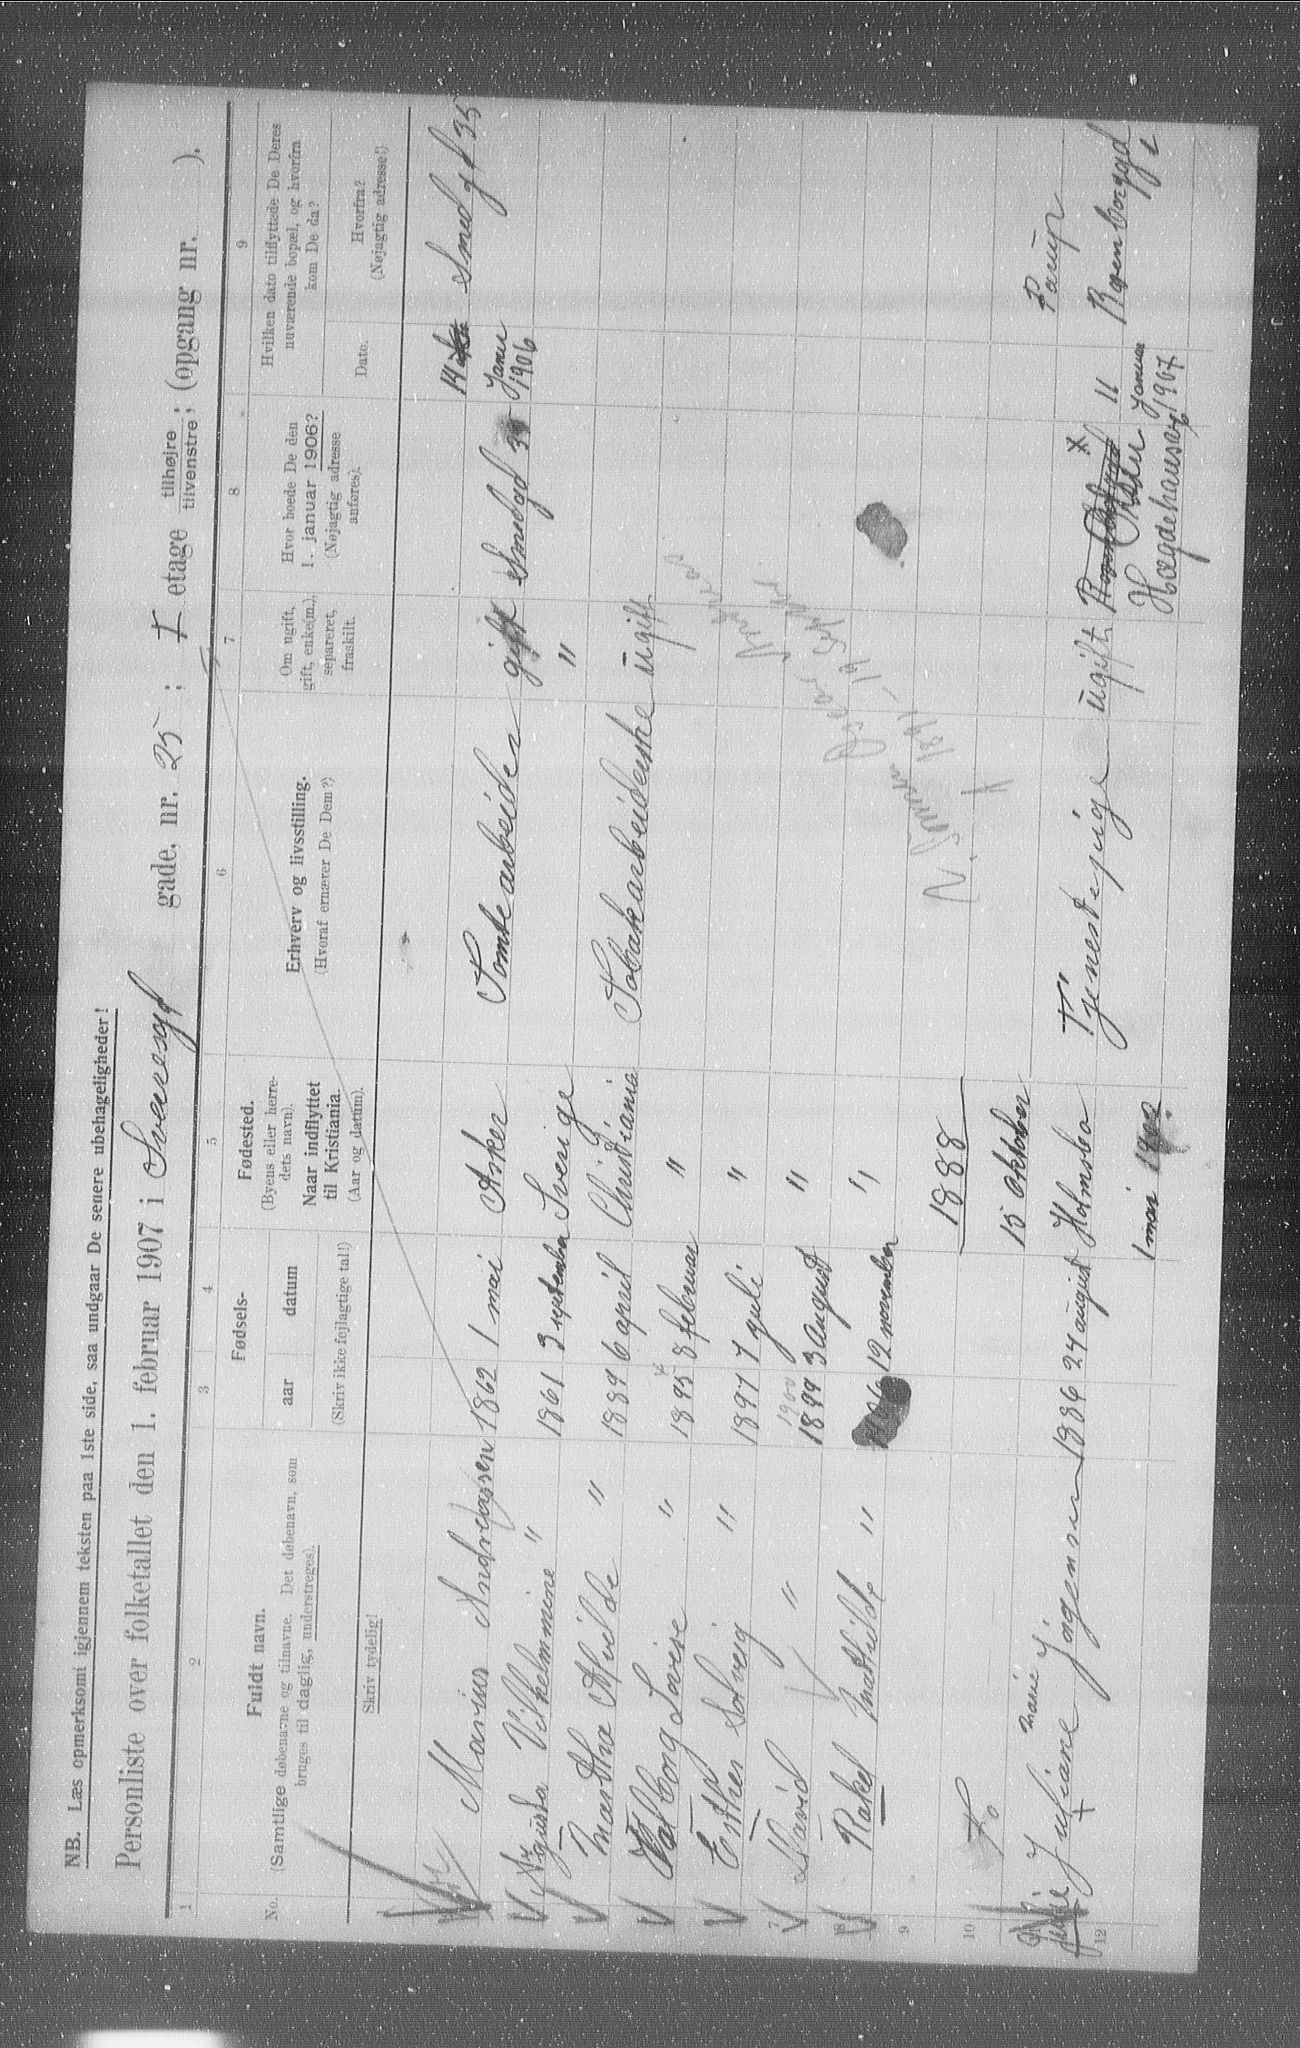 NB. Læs opmerksomt igjennem teksten paa 1ste side, saa undgaar De senere ubehageligheder!
Personliste over folketallet den 1. februar 1907 i Sveresgd gade, nr. 25 ; I etage tilhøjre tilvenstre ; (opgang nr. ).
1 2 3 4 5 6 7 8 9
No.
Fuldt navn.
(Samtlige døbenavne og tilnavne. Det døbenavn, som
bruges til daglig, understreges).
Skriv tydelig!
Fødsels-
aar datum
(Skriv ikke fejlagtige tal!)
Fødested.
(Byens eller herre-
dets navn).
Naar indflyttet
til Kristiania.
(Aar og datum).
Erhverv og livsstilling.
(Hvoraf ernærer De Dem?)
Om ugift,
gift, enke(m.),
separeret,
fraskilt.
Hvor boede De den
1. januar 1906?
(Nøjagtig adresse
anføres).
Hvilken dato tilflyttede De Deres
nuværende bopæl, og hvorfra
kom De da?
Date.
Hvorfra?
(Nøjagtig adresse!)
Marius Andreassen 1862 1 mai Asker Tomtearbeider gift Smedgd 35 14 Januar 1906 Smedgd 35
Agusta Vilhelmmine " 1861 3 september Sverige "
Martha Alvilde " 1889 6 april Christiania Tobakarbeiderske ugift
Valborg Lovise " 1895 8 februar "
Esther Solveig " 1897 7 juli "
1900
David " 1899 3 August "
Rakel Mathilde " 12 november "
9
1888
10
15 Oktober
Marie
Juliane Jörgensen 1886 24 august Holmsbo Tjenestepige ugift Hægdehausv. 11 Januar 1907 Rosenborggd
12
1 mai